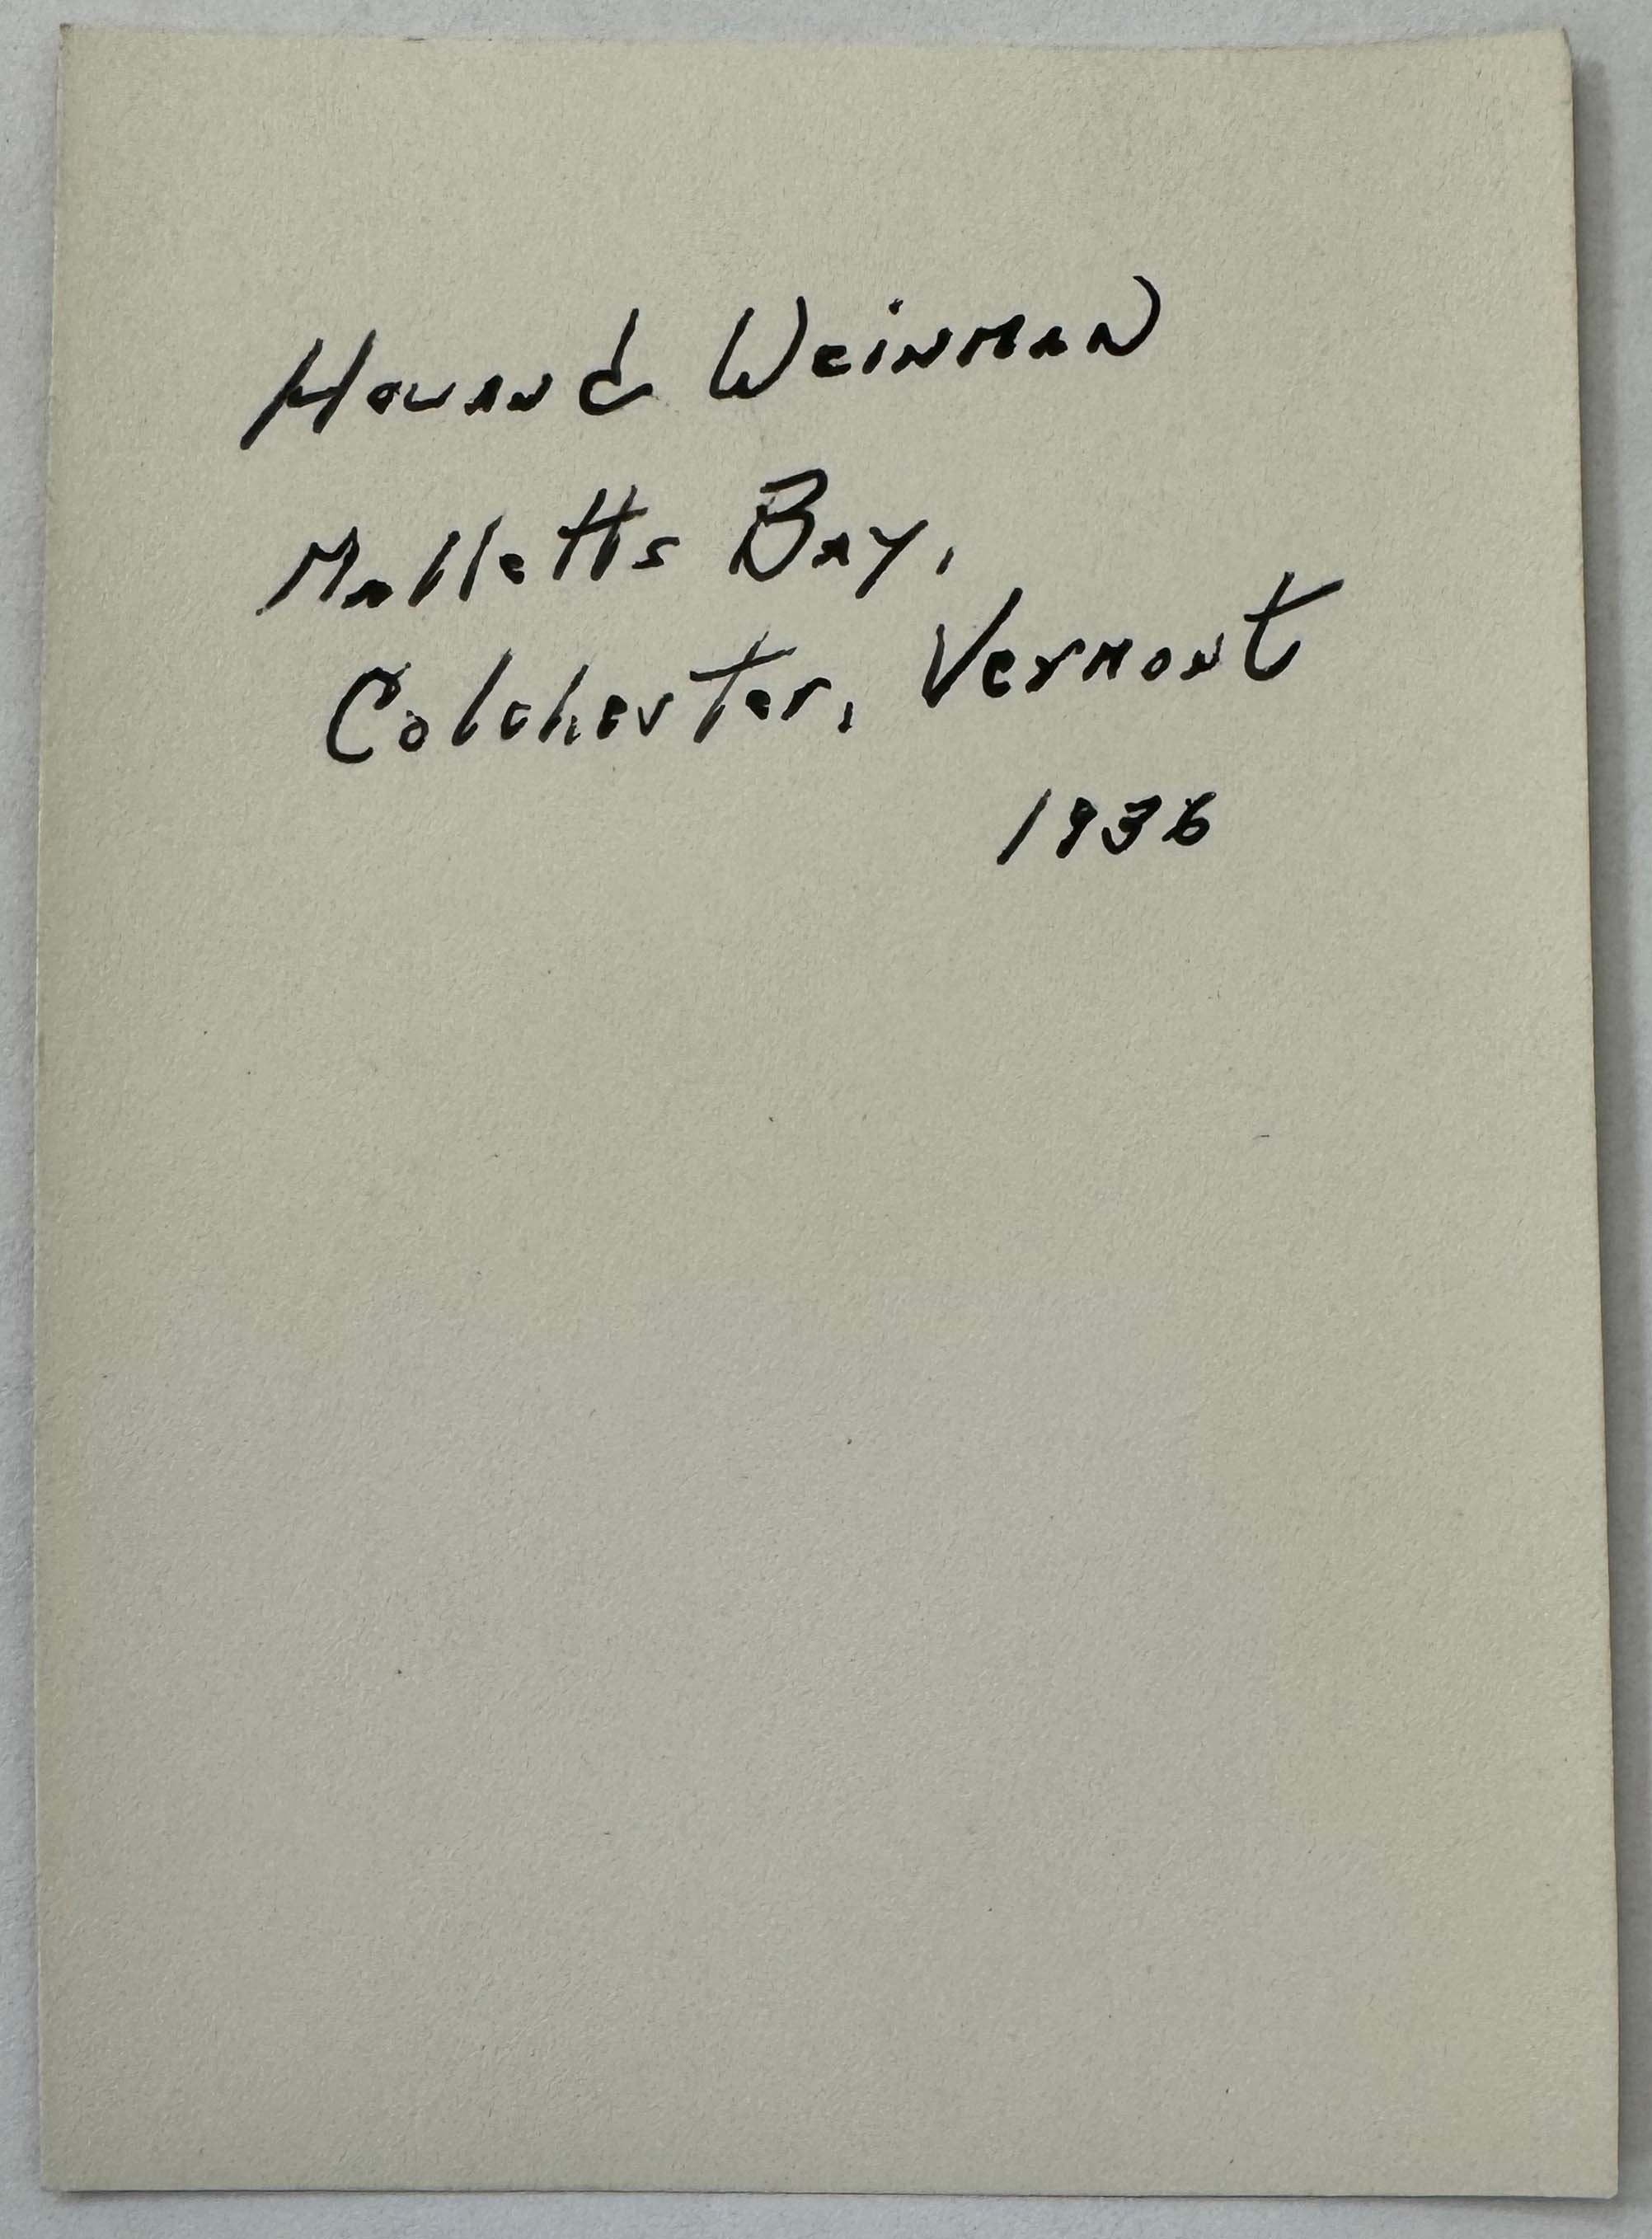 Howard Weinman
Malletts Bay,
Colchester, Vermont
1936